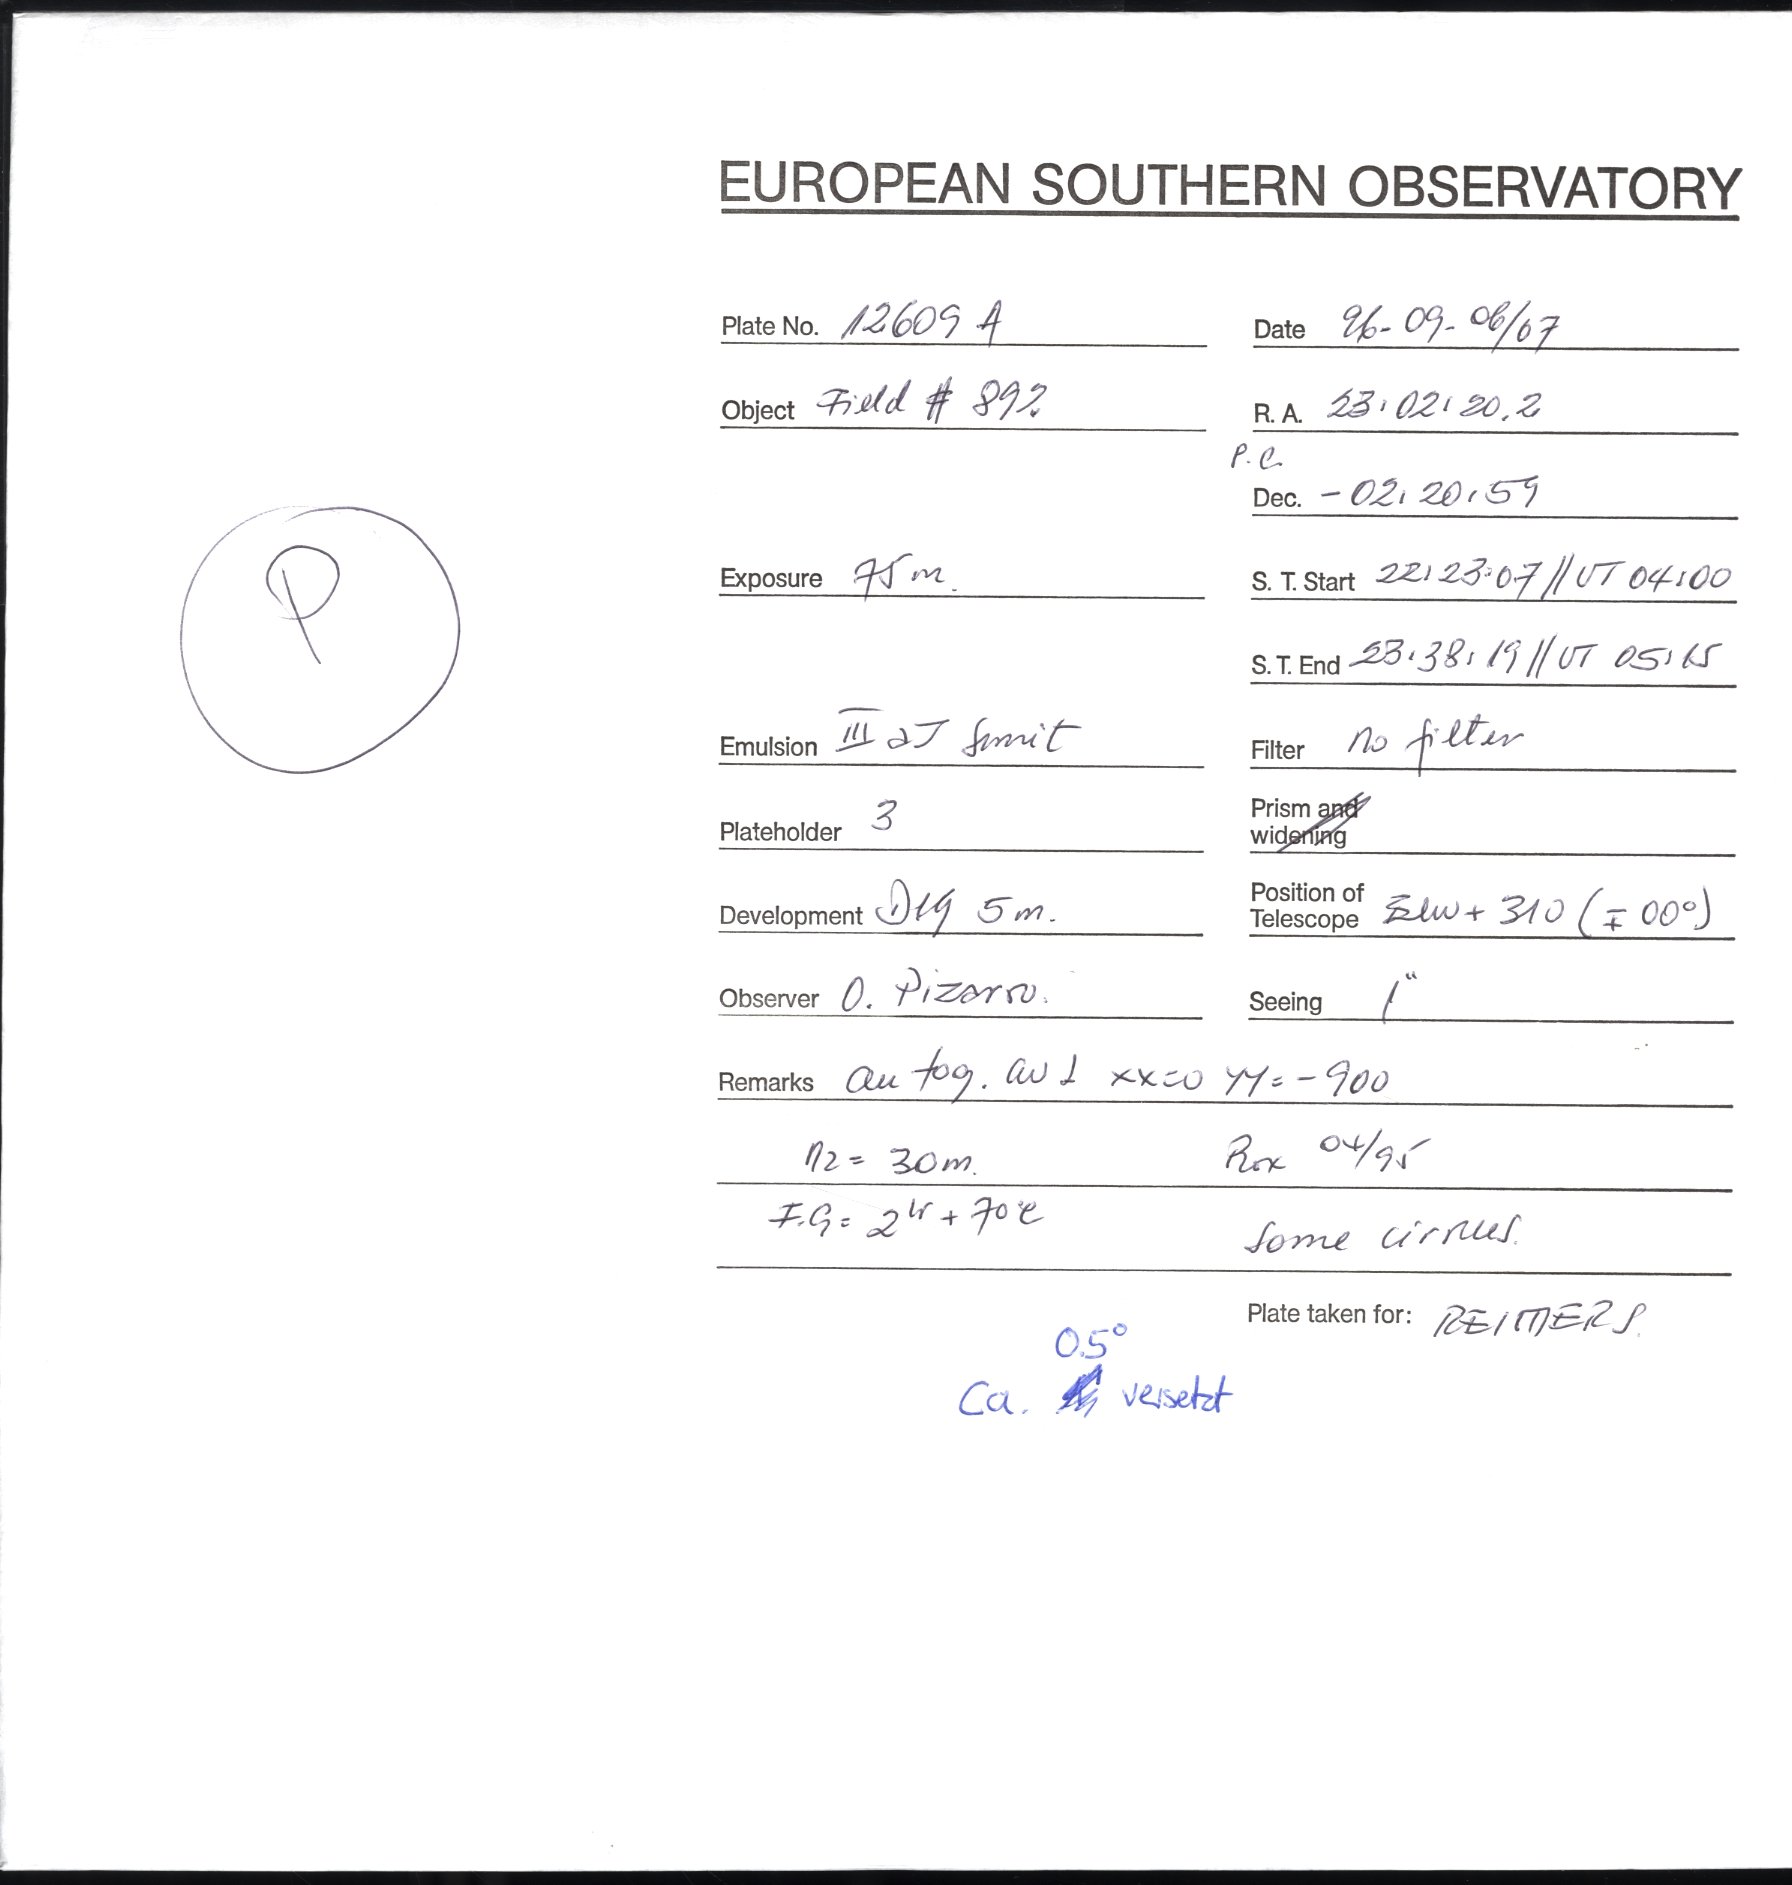 EUROPEAN SOUTHERN OBSERVATORY
Plate No. 12609 A
Date 96-09-06/07
Object Field # 892
R. A. 23:02:20.2
P.C.
Dec. -02:20:59
P
Exposure 75m.
S. T. Start 22:23:07 // UT 04:00
S. T. End 23:38:19 // UT 05:15
Emulsion III aJ
Filter no filter
Plateholder 3
Prism and
widening
Development D19 5m.
Position of
Telescope + 310 (∓ 00°)
Observer O. Pizarro.
Seeing 1"
Remarks xx=0 yy=-900
= 30m.
04/95
Some cirrus.
Plate taken for: REIMERS.
0.5°
Ca. versetzt